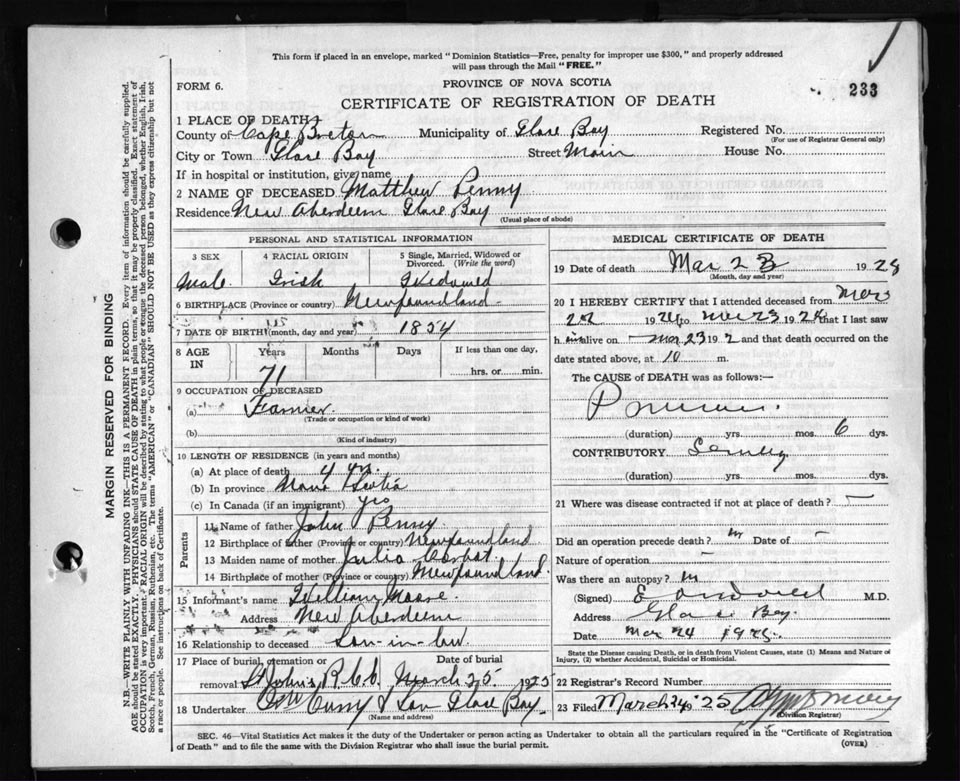 This form if placed in an envelope, marked "Dominion Statistics—Free, penalty for improper use $300," and properly addressed
will pass through the Mail "FREE."
FORM 6.
PROVINCE OF NOVA SCOTIA
233
CERTIFICATE OF REGISTRATION OF DEATH
1 PLACE OF DEATH
County of Cape Breton Municipality of Glace Bay Registered No.
(For use of Registrar General only)
City or Town Glace Bay Street Main House No.
If in hospital or institution, give name
2 NAME OF DECEASED Matthew Penny
Residence New Aberdeen Glace Bay
(Usual place of abode)
PERSONAL AND STATISTICAL INFORMATION
3 SEX
Male
4 RACIAL ORIGIN
Irish
5 Single, Married, Widowed or
Divorced. (Write the word)
Widowed
6 BIRTHPLACE (Province or country) Newfoundland
7 DATE OF BIRTH (month, day and year) 1854
8 AGE IN
Years Months Days
71
If less than one day,
hrs. or min.
9 OCCUPATION OF DECEASED
(a) Farmer
(Trade or occupation or kind of work)
(b)
(Kind of industry)
10 LENGTH OF RESIDENCE (in years and months)
(a) At place of death 4 yrs.
(b) In province Nova Scotia
(c) In Canada (if an immigrant) yes
Parents
11 Name of father John Penny
12 Birthplace of father (Province or country) Newfoundland
13 Maiden name of mother Julia
14 Birthplace of mother (Province or country) Newfoundland
15 Informant's name William Moore
Address New Aberdeen
16 Relationship to deceased Son-in-law
17 Place of burial, cremation or Date of burial
removal St John's R.C.C. March 25 1925
18 Undertaker Curry & Son Glace Bay
(Name and address)
MEDICAL CERTIFICATE OF DEATH
19 Date of death Mar 23 192
(Month, day and year)
20 I HEREBY CERTIFY that I attended deceased from Mar
192 to Mar 23 192 that I last saw
h im alive on Mar 23 192 and that death occurred on
date stated above, at 10 m.
The CAUSE of DEATH was as follows:—
(duration) yrs. mos. 6 dys.
CONTRIBUTORY Senility
(duration) yrs. mos. dys.
21 Where was disease contracted if not at place of death? —
Did an operation precede death? Date of —
Nature of operation —
Was there an autopsy?
(Signed) M.D.
Address Glace Bay
Date Mar 24 1925
State the Disease causing Death, or in death from Violent Causes, state (1) Means and Nature of
Injury, (2) whether Accidental, Suicidal or Homicidal.
22 Registrar's Record Number
23 Filed March 24 '25
(Division Registrar)
SEC. 46—Vital Statistics Act makes it the duty of the Undertaker or person acting as Undertaker to obtain all the particulars required in the "Certificate of Registration
of Death" and to file the same with the Division Registrar who shall issue the burial permit.
(OVER)
MARGIN RESERVED FOR BINDING
N.B.—WRITE PLAINLY WITH UNFADING INK—THIS IS A PERMANENT RECORD. Every item of information should be carefully supplied.
AGE should be stated EXACTLY. PHYSICIANS should STATE CAUSE OF DEATH in plain terms, so that it may be properly classified. Exact statement of
OCCUPATION is very important. RACIAL ORIGIN will be described by stating to what people or tongue the deceased person belonged, whether English, Irish,
Scotch, French, German, Russian, Ruthenian, etc. The terms "AMERICAN" or "CANADIAN" SHOULD NOT BE USED as they express citizenship but not
a race or people. See instructions on back of Certificate.